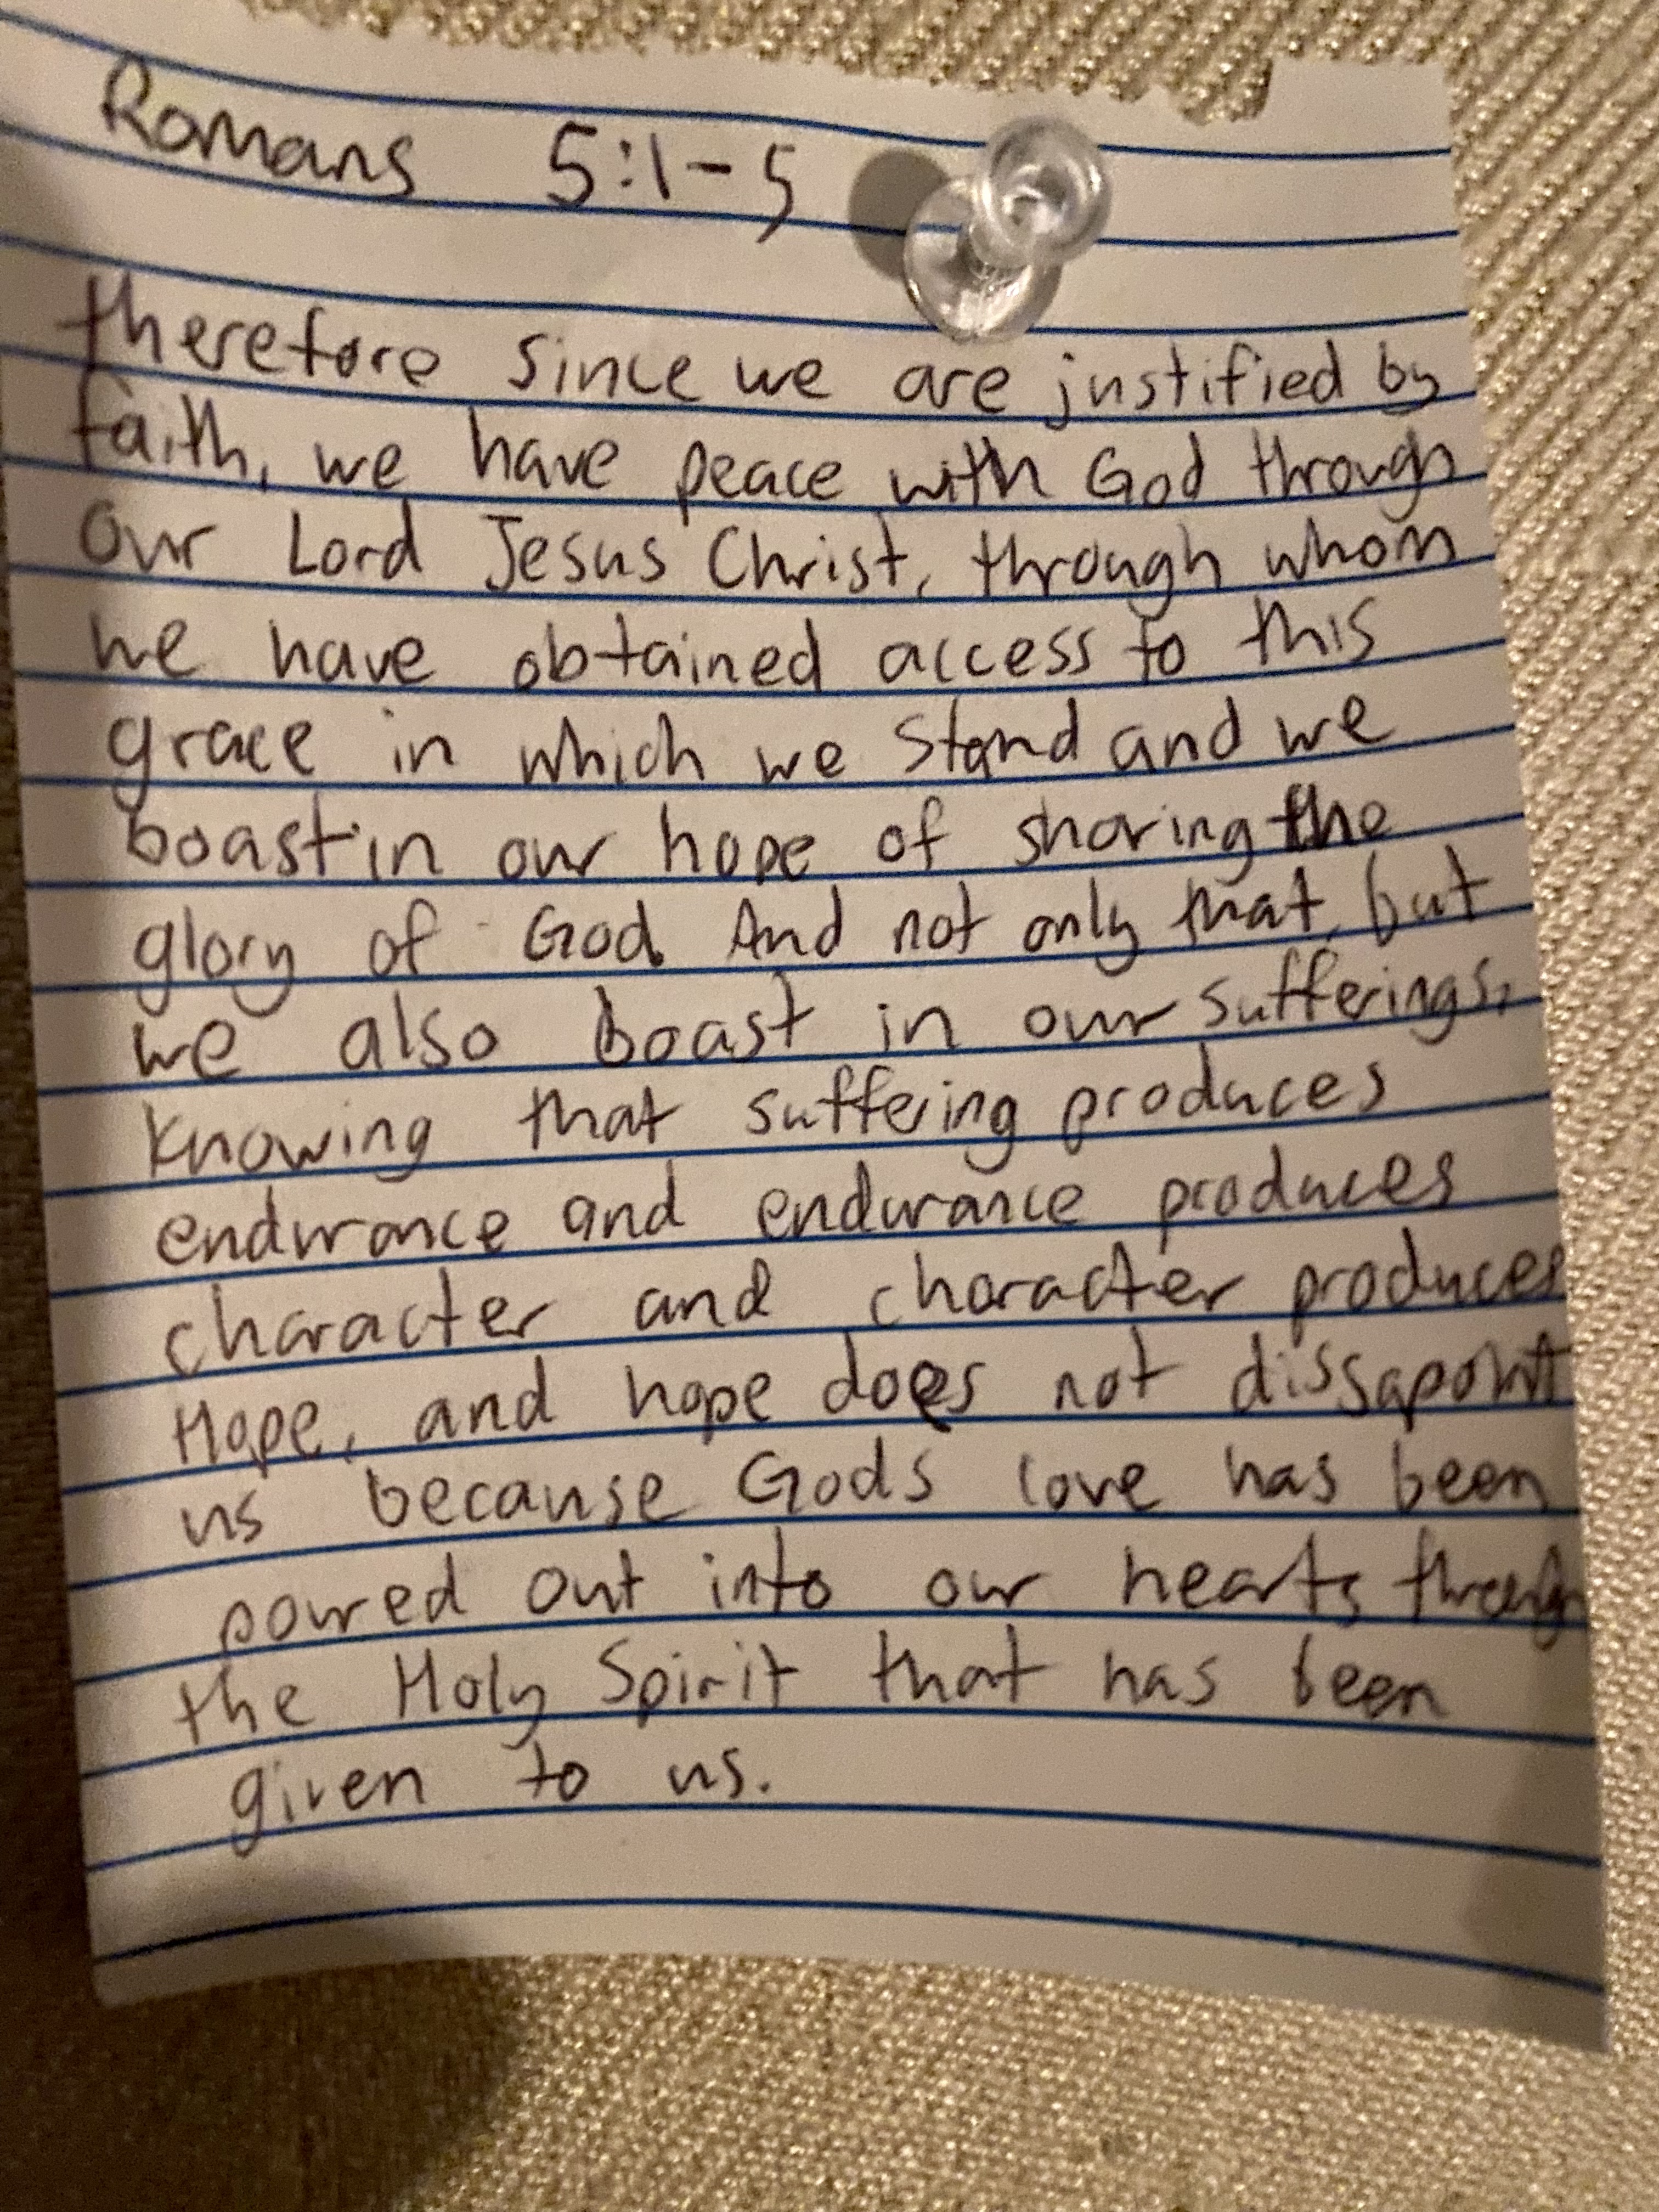 Romans 5:1-5
therefore since we are justified by
faith, we have peace with God through
our Lord Jesus Christ, through whom
we have obtained access to this
grace in which we stand and we
boast in our hope of sharing the
glory of God. And not only that, but
we also boast in our sufferings,
knowing that suffering produces
endurance and endurance produces
character and character produces
Hope, and hope does not dissapoint
us because Gods love has been
poured out into our hearts through
the Holy Spirit that has been
given to us.